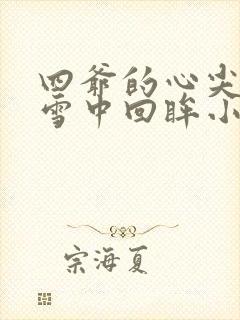 四爷的心尖
雪中回眸小
宗海夏